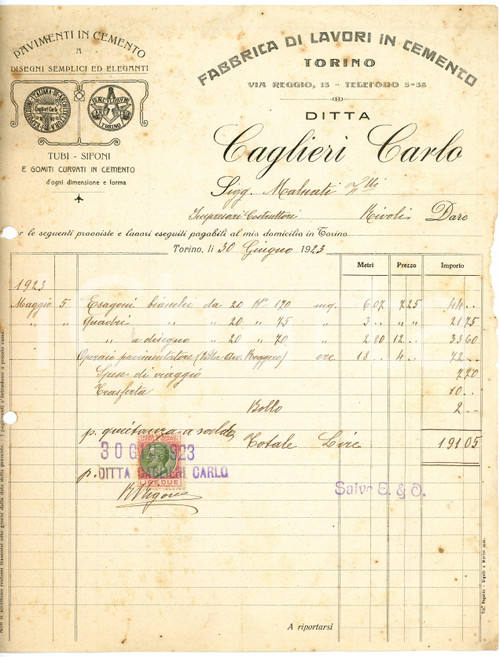 PAVIMENTI IN CEMENTO
A
DISEGNI SEMPLICI ED ELEGANTI
TUBI - SIFONI
E GOMITI CURVATI IN CEMENTO
d'ogni dimensione e forma
FABBRICA DI LAVORI IN CEMENTO
TORINO
VIA REGGIO, 13 - TELEFONO 5-38
DITTA
Caglieri Carlo
Sigg. Malnati F.lli
Impresari Costruttori Rivoli Dare
per le seguenti provviste e lavori eseguiti pagabili al mio domicilio in Torino
Torino, li 30 Giugno 1923
Metri Prezzo Importo
1923
Maggio 5 Esagoni bianchi da 20 N° 170 mq. 6.07 7.25 44..
" " Quadri " " 20 " 75 " 3.. " " 21 75
" " " a disegno " 20 " 70 " 2.80 12.. 33 60
Operaio pavimentatore ore 18.. 4.. 72..
Spese di viaggio 7 70
Trasferta 10..
Bollo 2..
p. quietanza a saldo Totale Lire 191.05
30 GIU 1923
p. DITTA CAGLIERI CARLO
LIRE DUE
Salvo E. & O.
A riportarsi